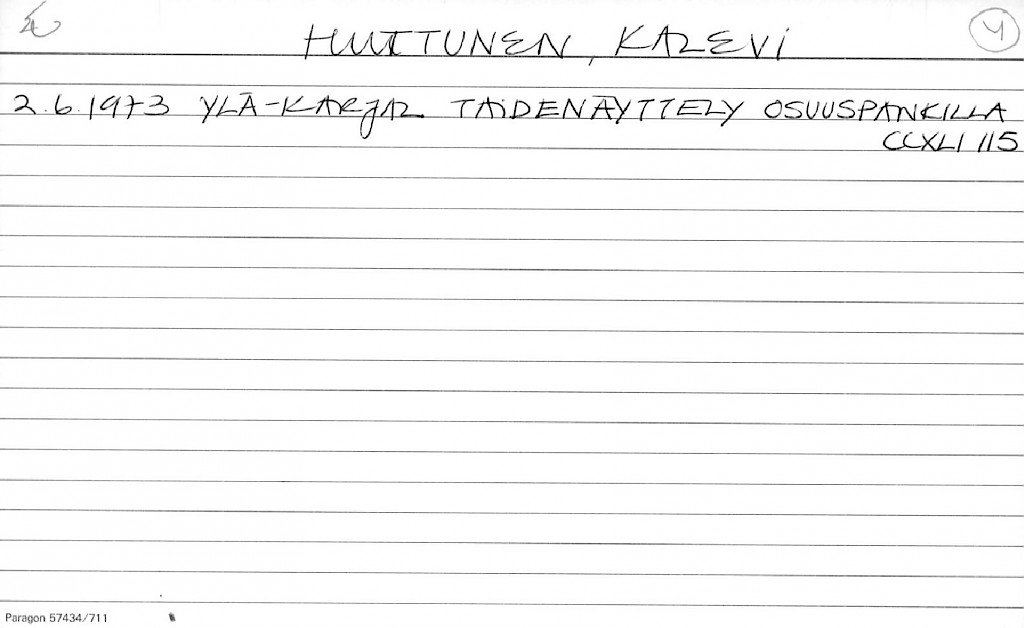 HUUTTUNEN, KALEVI
Y
2.6.1973 YLÄ-KARJAL TAIDENÄYTTELY OSUUSPANKILLA
CCXLI 115
Paragon 57434/711